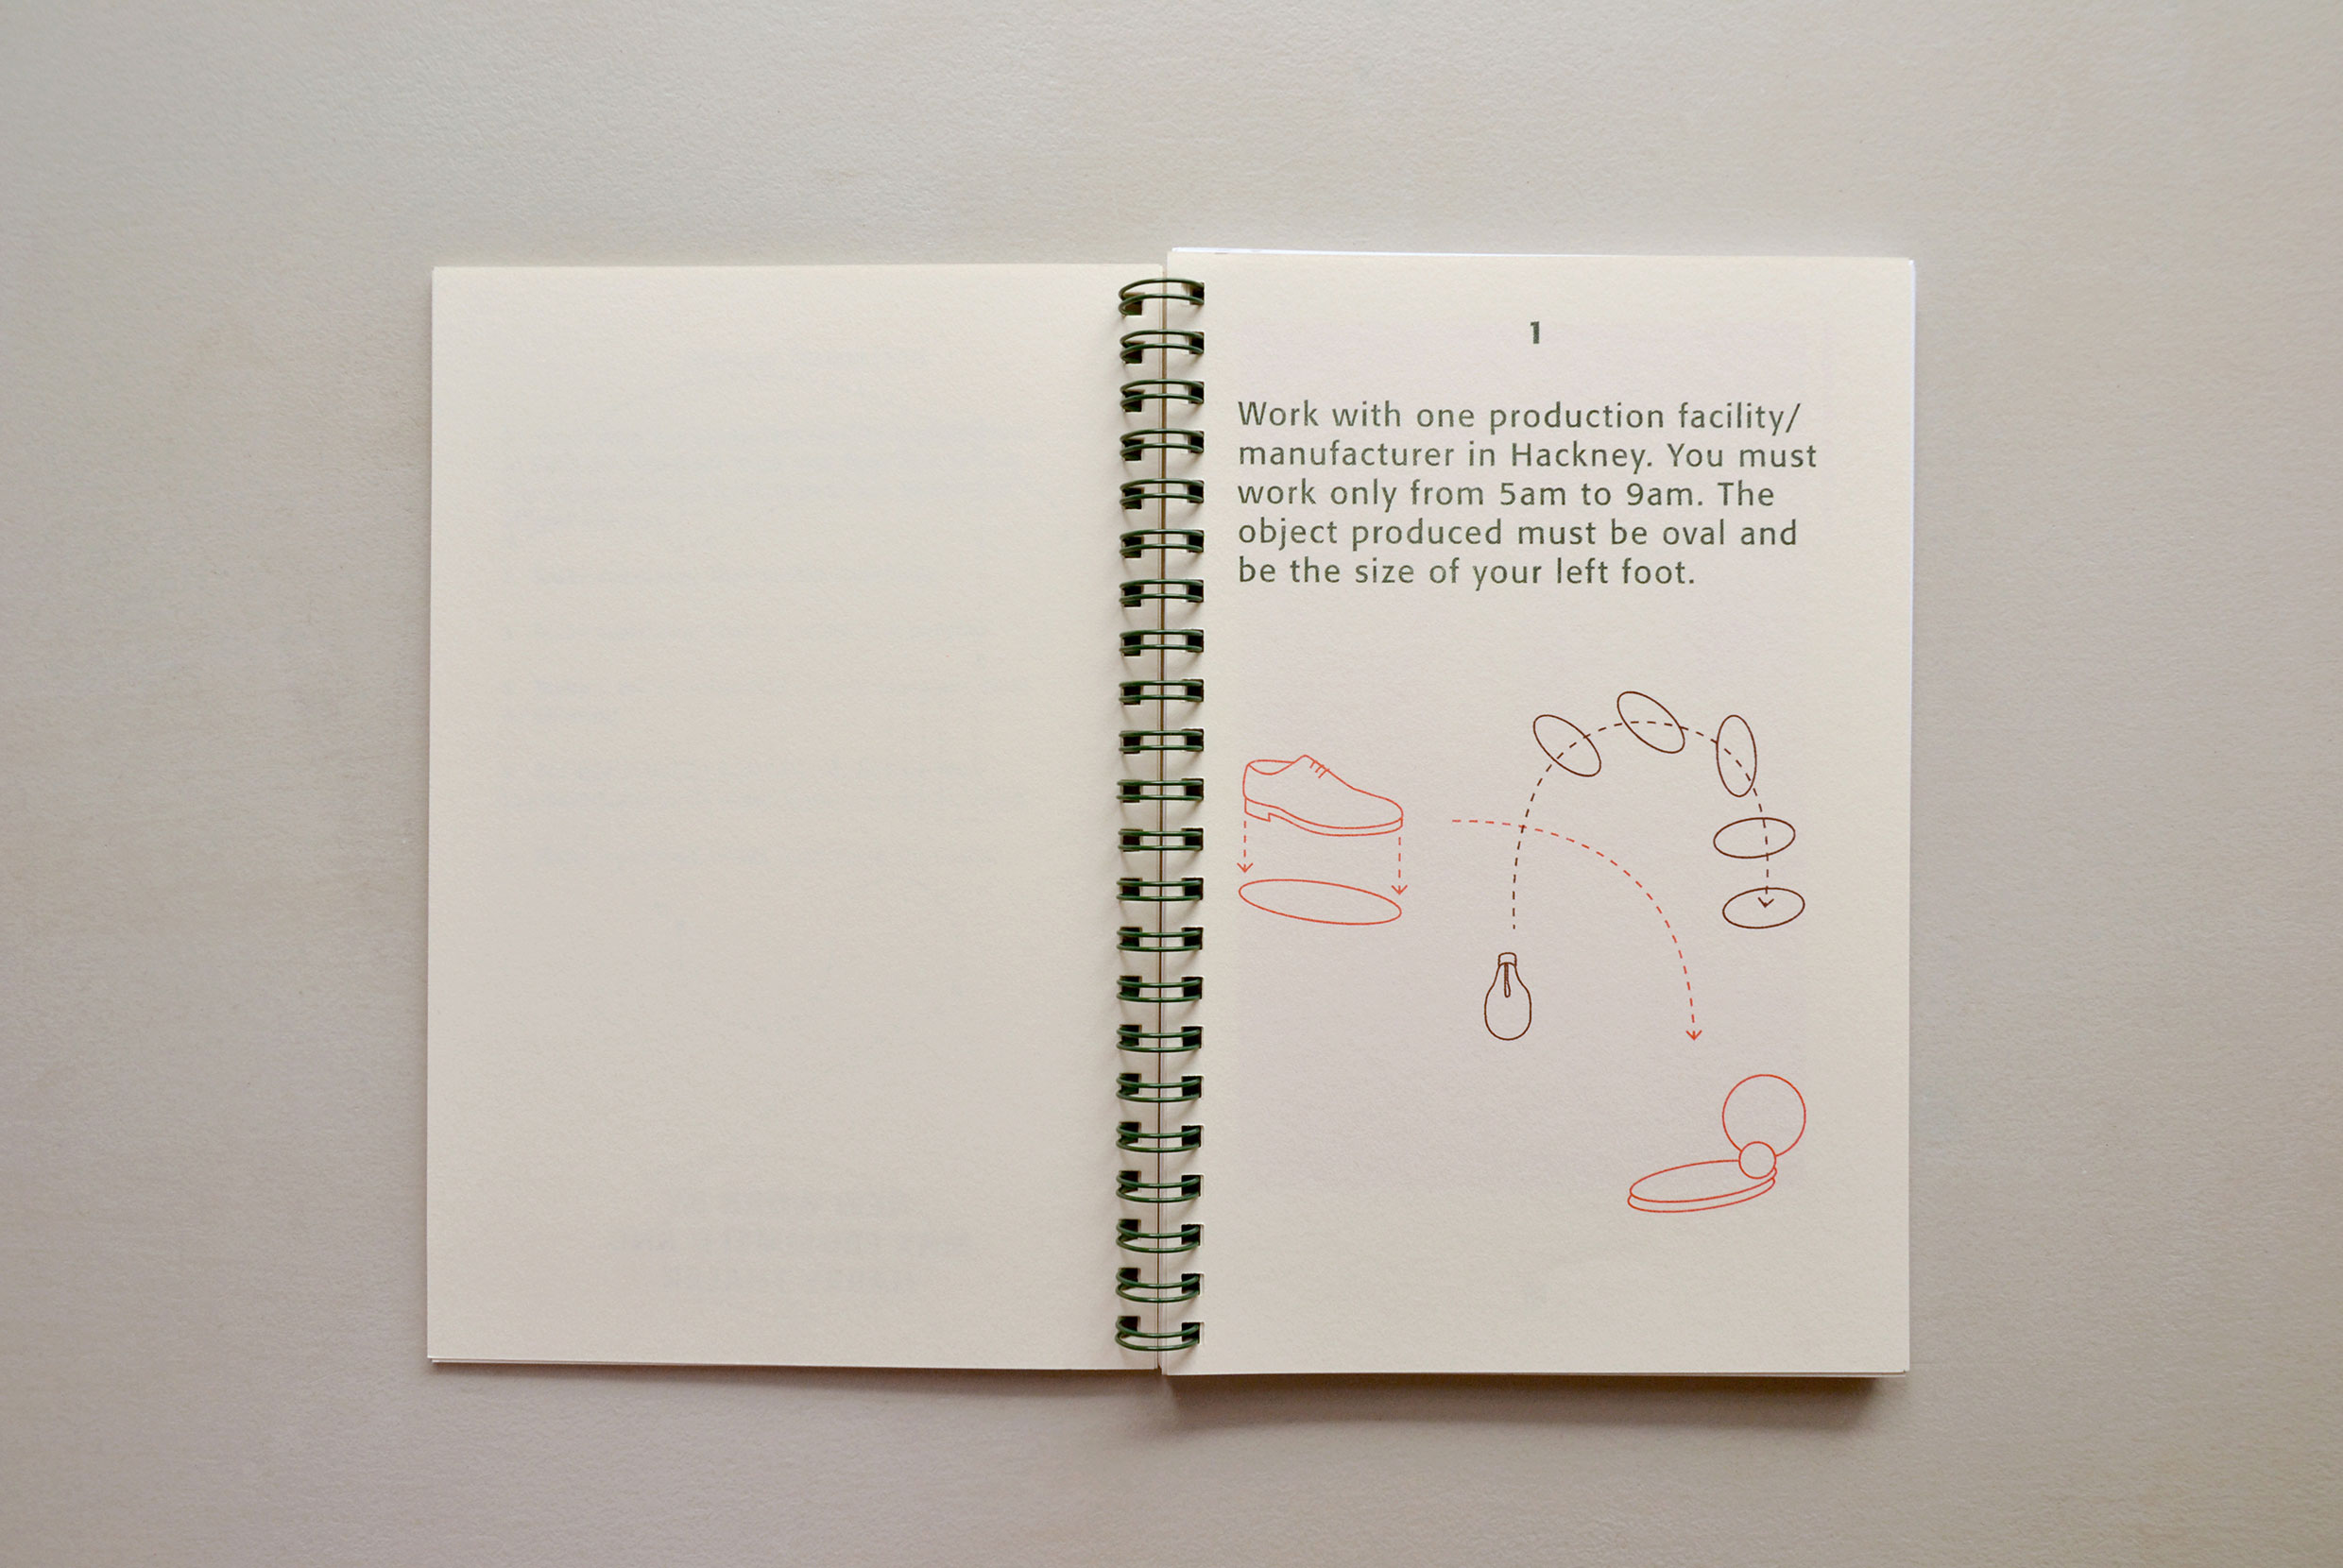 1
Work with one production facility/
manufacturer in Hackney. You must
work only from 5am to 9am. The
object produced must be oval and
be the size of your left foot.